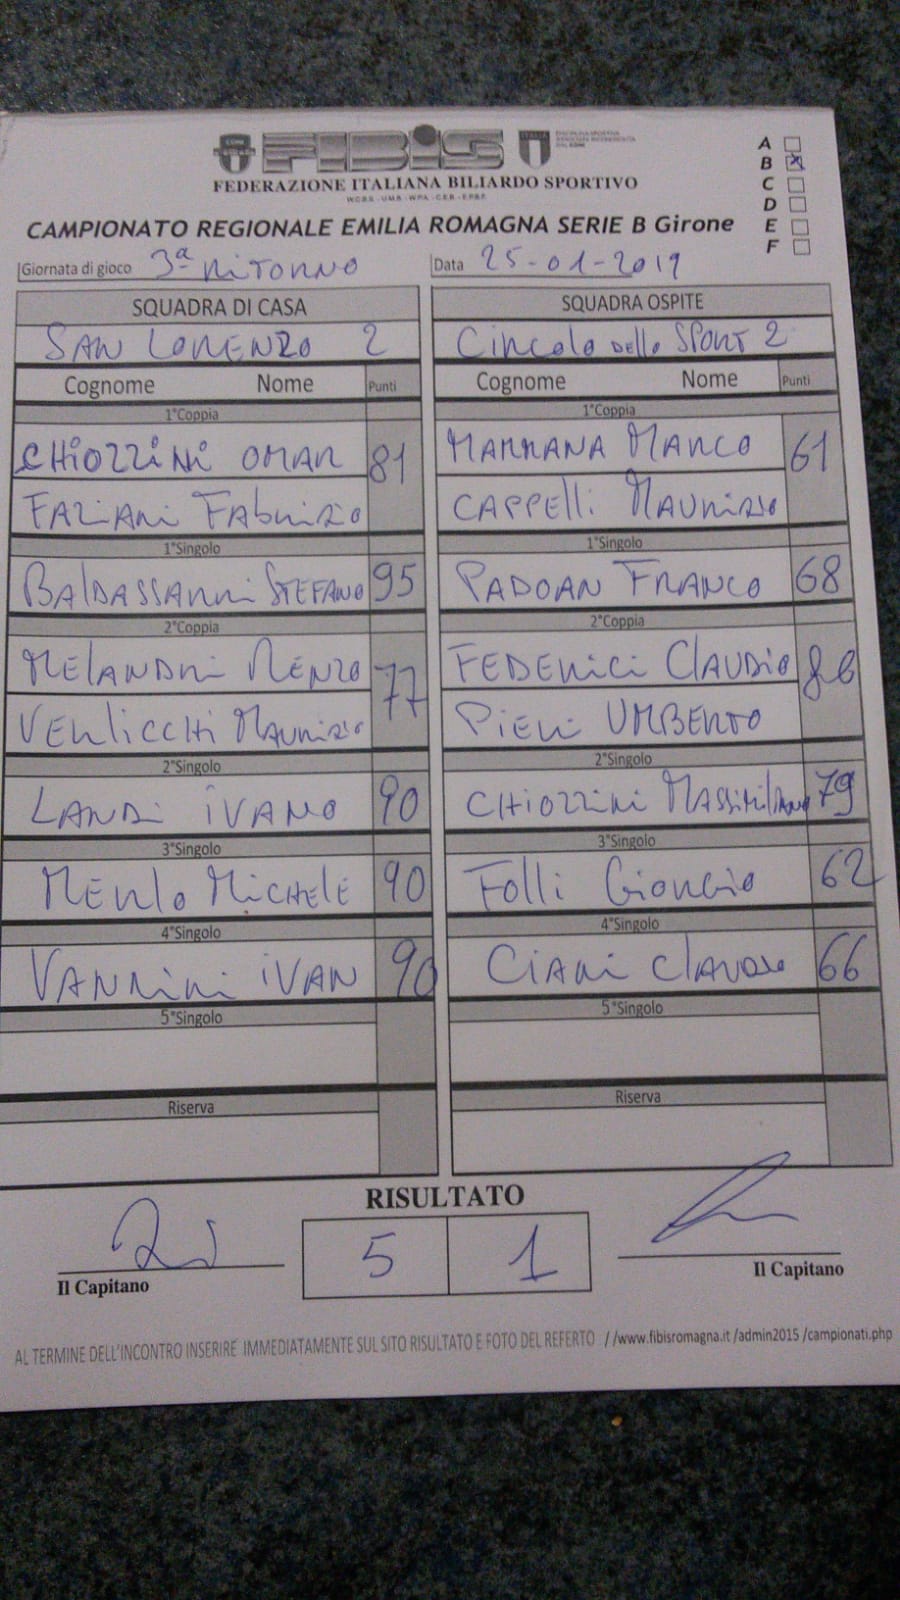 FIBiS
FEDERAZIONE ITALIANA BILIARDO SPORTIVO
W.C.B.S. - U.M.B. - W.P.A. - C.E.B. - E.P.B.F.
A
B X
C
D
E
F
CAMPIONATO REGIONALE EMILIA ROMAGNA SERIE B Girone
Giornata di gioco 3ª RITORNO Data 25-01-2019
SQUADRA DI CASA SQUADRA OSPITE
SAN LORENZO 2 Circolo dello SPORT 2
Cognome Nome Punti Cognome Nome Punti
1°Coppia 1°Coppia
CHIOZZINI OMAR 81 MARRANA MARCO 61
FAZIANI FABRIZIO CAPPELLI MAURIZIO
1°Singolo 1°Singolo
BALDASSARRI STEFANO 95 PADOAN FRANCO 68
2°Coppia 2°Coppia
MELANDRI RENZO 77 FEDERICI CLAUDIO
VERLICCHI MAURIZIO PIERI UMBERTO
2°Singolo 2°Singolo
LANDI IVANO 90 CHIOZZINI MASSIMILIANO 79
3°Singolo 3°Singolo
MERLO MICHELE 90 FOLLI GIORGIO 62
4°Singolo 4°Singolo
VANNINI IVAN 90 CIANI 66
5°Singolo 5°Singolo
Riserva Riserva
RISULTATO
5 1
Il Capitano Il Capitano
AL TERMINE DELL'INCONTRO INSERIRE IMMEDIATAMENTE SUL SITO RISULTATO E FOTO DEL REFERTO //www.fibisromagna.it /admin2015 /campionati.php